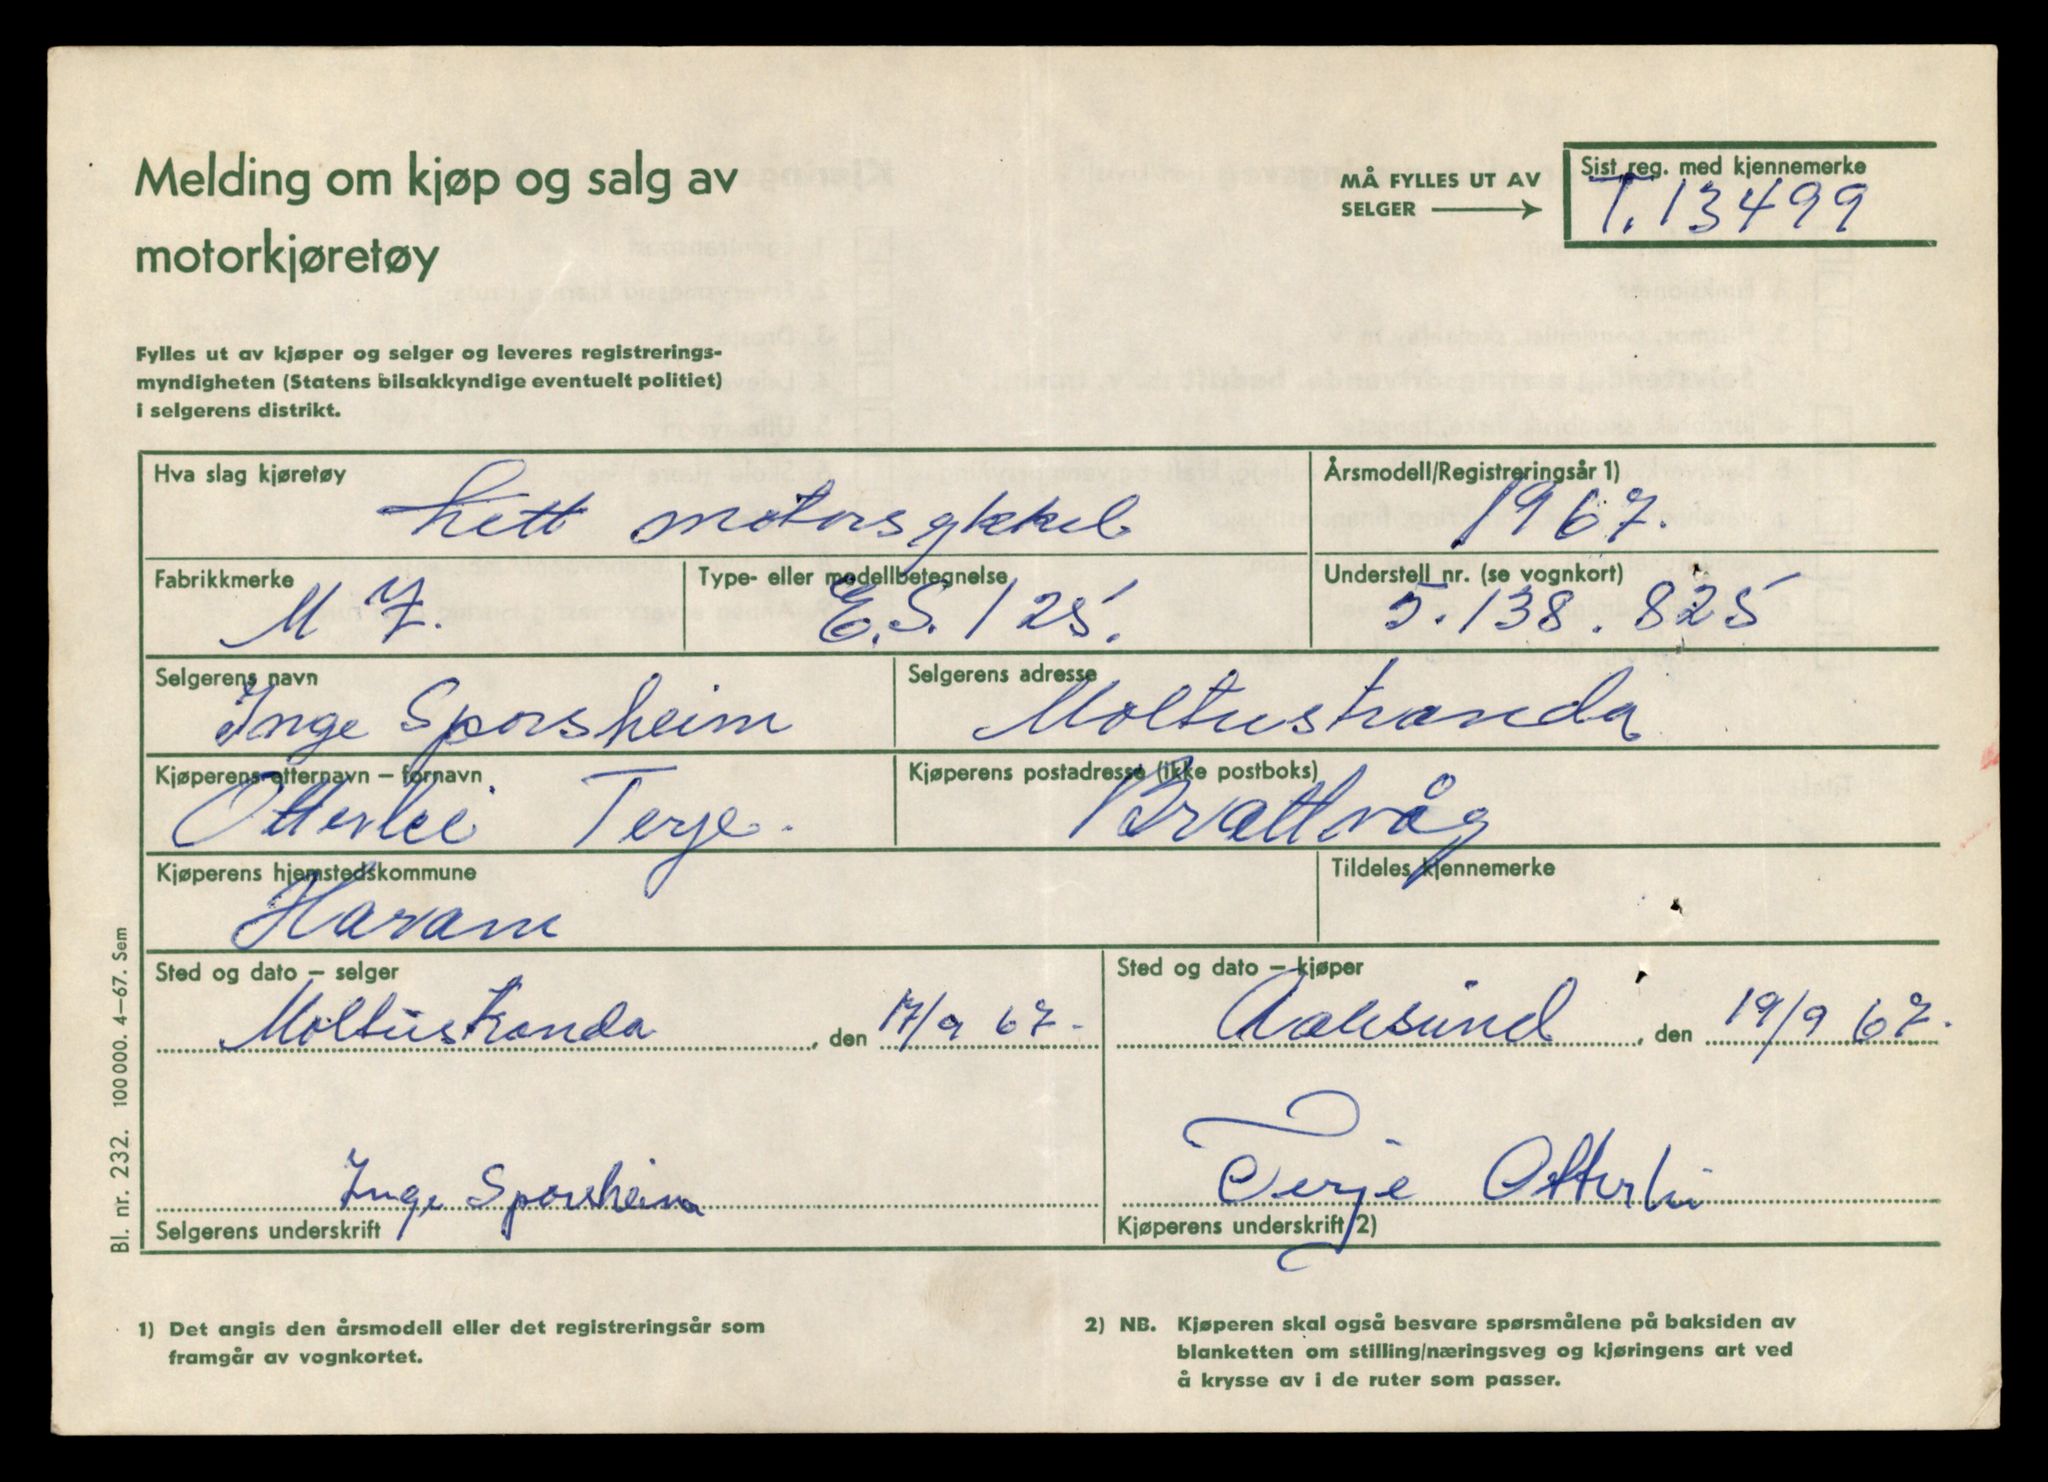 Melding om kjøp og salg av
motorkjøretøy
MÅ FYLLES UT AV
SELGER
Sist reg. med kjennemerke
T.13499
Fylles ut av kjøper og selger og leveres registrerings-
myndigheten (Statens bilsakkyndige eventuelt politiet)
i selgerens distrikt.
Hva slag kjøretøy
Lett motorsykkel
Årsmodell/Registreringsår 1)
1967.
Fabrikkmerke
M Z.
Type- eller modellbetegnelse
E.S. 125.
Understell nr. (se vognkort)
5.138.825
Selgerens navn
Inge Sporsheim
Selgerens adresse
Moltustranda
Kjøperens etternavn – fornavn
Otterlei Terje.
Kjøperens postadresse (ikke postboks)
Brattvåg
Kjøperens hjemstedskommune
Haram
Tildeles kjennemerke
Sted og dato – selger
Moltustranda, den 17/9 67.
Sted og dato – kjøper
Aalesund, den 19/9 67.
Inge Sporsheim
Selgerens underskrift
Terje Otterlei
Kjøperens underskrift 2)
Bl. nr. 232. 100 000. 4–67. Sem
1) Det angis den årsmodell eller det registreringsår som
framgår av vognkortet.
2) NB. Kjøperen skal også besvare spørsmålene på baksiden av
blanketten om stilling/næringsveg og kjøringens art ved
å krysse av i de ruter som passer.